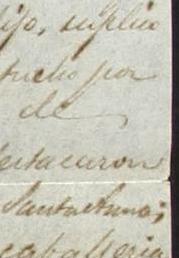 ijo, suplico
por
de
destacaron
Santa Anna;
caballeria